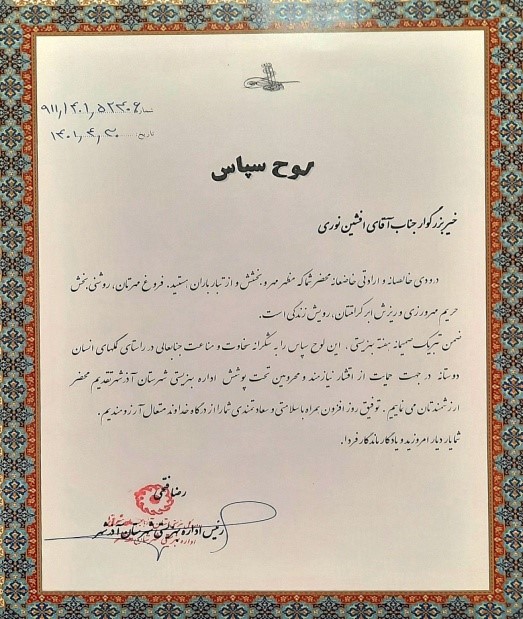 شماره: ۹۱۱/۱۴۰۱/۵۲۳۰۶
تاریخ: ۱۴۰۱/۴/۳۰
لوح سپاس
خیر بزرگوار جناب آقای افشین نوری
درودی خالصانه و ارادتی خاضعانه محضر شما که مظهر مهر و بخشش و از تبار باران هستید، فروغ مهرتان، روشنی بخش
حریم مهرورزی و ریزش ابر کرامتتان، رویش زندگی است.
ضمن تبریک صمیمانه هفته بهزیستی، این لوح سپاس را به شکرانه سخاوت و مناعت جنابعالی در راستای کمکهای انسان
دوستانه در جهت حمایت از اقشار نیازمند و محرومین تحت پوشش اداره بهزیستی شهرستان آذرشهر تقدیم محضر
ارزشمندتان می نماییم. توفیق روز افزون همراه با سلامتی و سعادتمندی شما را از درگاه خداوند متعال آرزومندیم.
شما یار دیار امروزید و یادگار ماندگار فردا.
رضا فقهی
رئیس اداره بهزیستی شهرستان آذرشهر